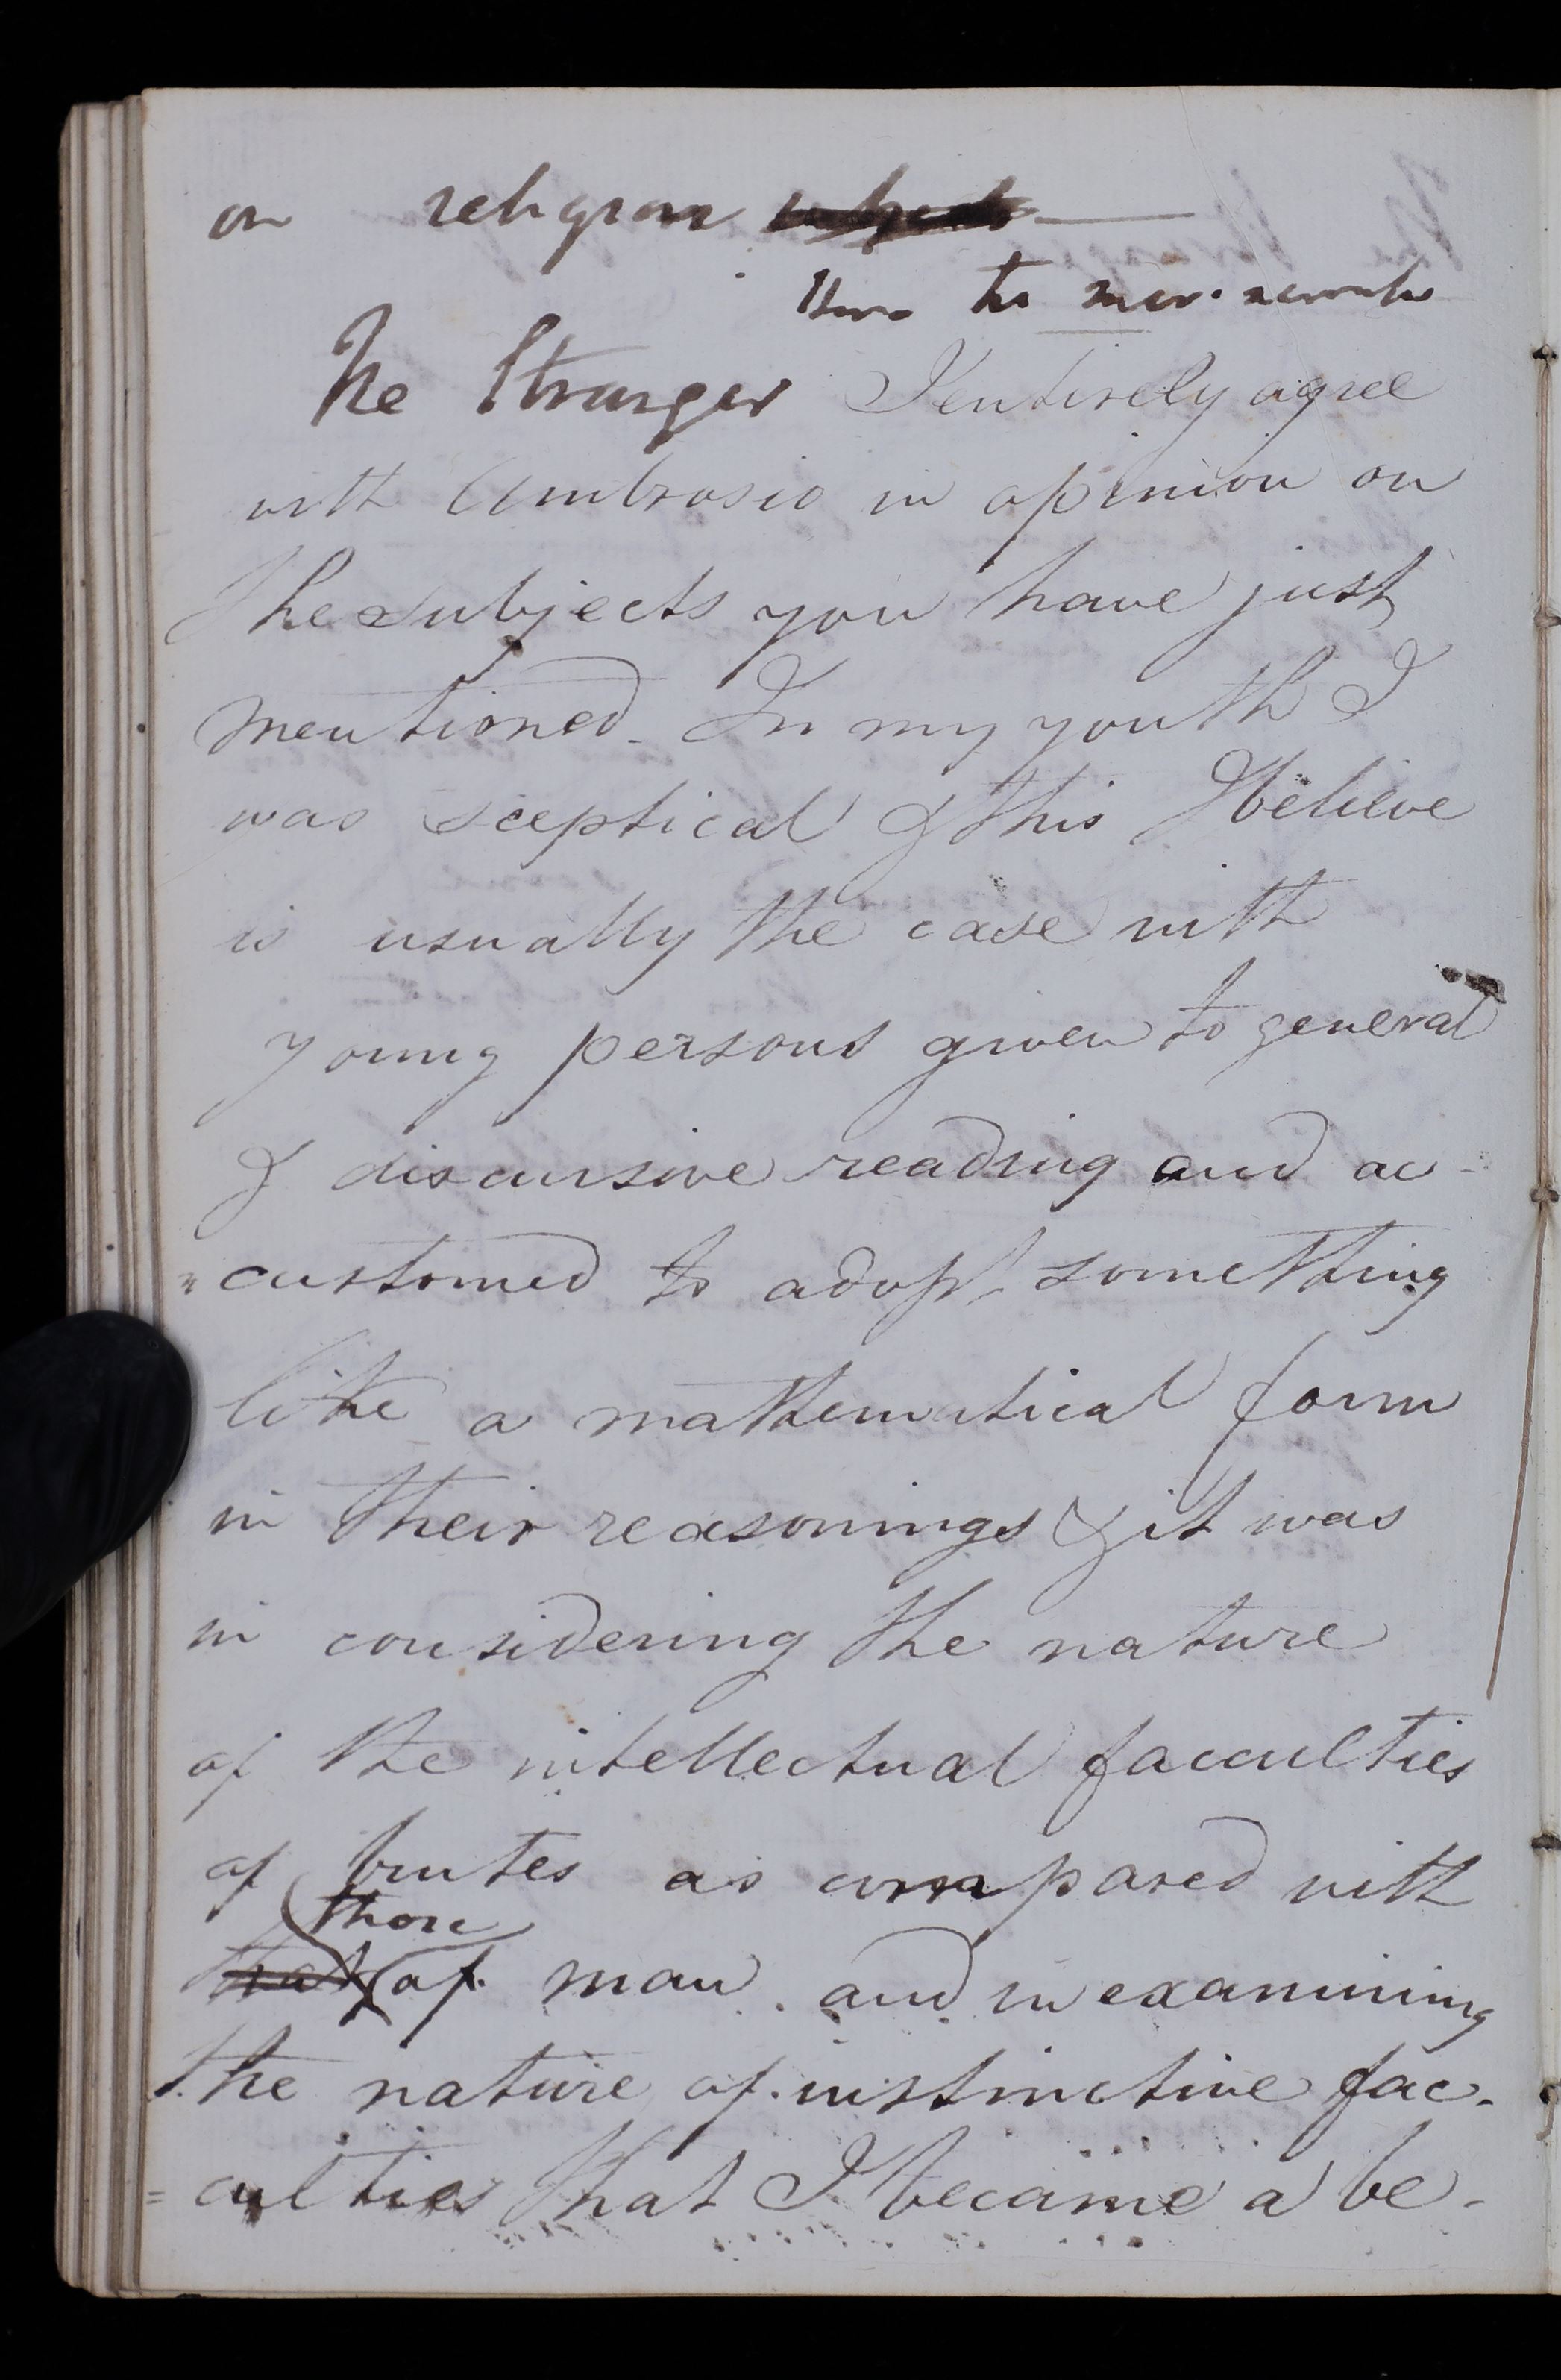 on religion
The Stranger I entirely agree
with Ambrosio in opinion on
the subjects you have just
mentioned. In my youth I
was sceptical & this I believe
is usually the case with
young persons given to general
& discursive reading and ac-
=customed to adopt something
like a mathematical form
in their reasonings & it was
in considering the nature
of the intellectual facculties
of brutes as compared with
those
that of man. and in examining
the nature of instinctive fac-
=culties that I became a be-